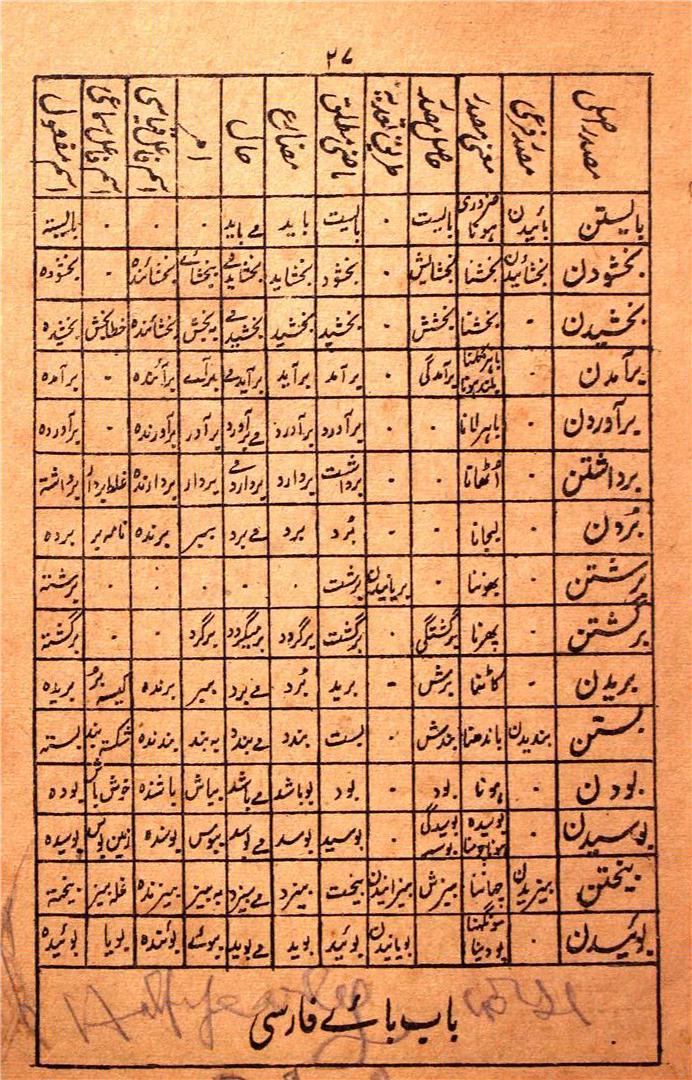 ۲۷
مصدر اصلی مصدر فرعی معنی مصدر حاصل مصدر طریق تعدیہ ماضی مطلق مضارع حال امر اسم فاعل قیاسی اسم فاعل سماعی اسم مفعول
بایستن بائیدن ضروری ہونا بایست ۰ بایست باید مے باید ۰ ۰ ۰ بایستہ
بخشودن بخشائیدن بخشنا بخشایش ۰ بخشود بخشاید مے بخشاید بخشائے بخشائندہ ۰ بخشودہ
بخشیدن ۰ بخشنا بخشش ۰ بخشید بخشد مے بخشد بخش بخشائندہ خطابخش بخشیدہ
برآمدن ۰ باہر نکلنا بلند ہونا برآمدگی ۰ برآمد برآید برآید مے برآے برآئندہ ۰ برآمدہ
برآوردن ۰ باہر لانا ۰ ۰ برآورد برآورد مے برآورد برآور برآورندہ ۰ برآوردہ
برداشتن ۰ اُٹھانا ۰ ۰ برداشت بردارد مے بردارد بردار بردارندہ غلط بردار برداشتہ
بُردن ۰ لیجانا ۰ ۰ بُرد برد مے برد ببر برندہ نامہ بر بردہ
برشتن ۰ بھوننا ۰ بریانیدن برشت ۰ ۰ ۰ ۰ ۰ برشتہ
برگشتن ۰ پھرنا برگشتگی ۰ برگشت برگردد برمیگردد برگرد ۰ ۰ برگشتہ
بریدن ۰ کاٹنا برش ۰ برید بُرد مے برد ببر برندہ کیسہ بُر بریدہ
بستن بندیدن باندھنا بندش ۰ بست بندد مے بندد بہ بند بندندہ شکستہ بند بستہ
بودن ۰ ہونا بود ۰ بود بوباشد مے باشد بباش باشندہ خوش باش بودہ
بوسیدن ۰ بوسیدہ ہونا چومنا بوسیدگی بوسہ ۰ بوسید بوسد مے بوسد ببوس بوسندہ زمین بوس بوسیدہ
بیختن بیزیدن چھاننا بیزش بیزانیدن بیخت بیزد مے بیزد بہ بیز بیزندہ غلہ بیز بیختہ
بوئیدن ۰ سونگھنا بو دینا بویانیدن بوئید بوید مے بوید ببوئے بوئندہ بویا بوئیدہ
باب بائے فارسی